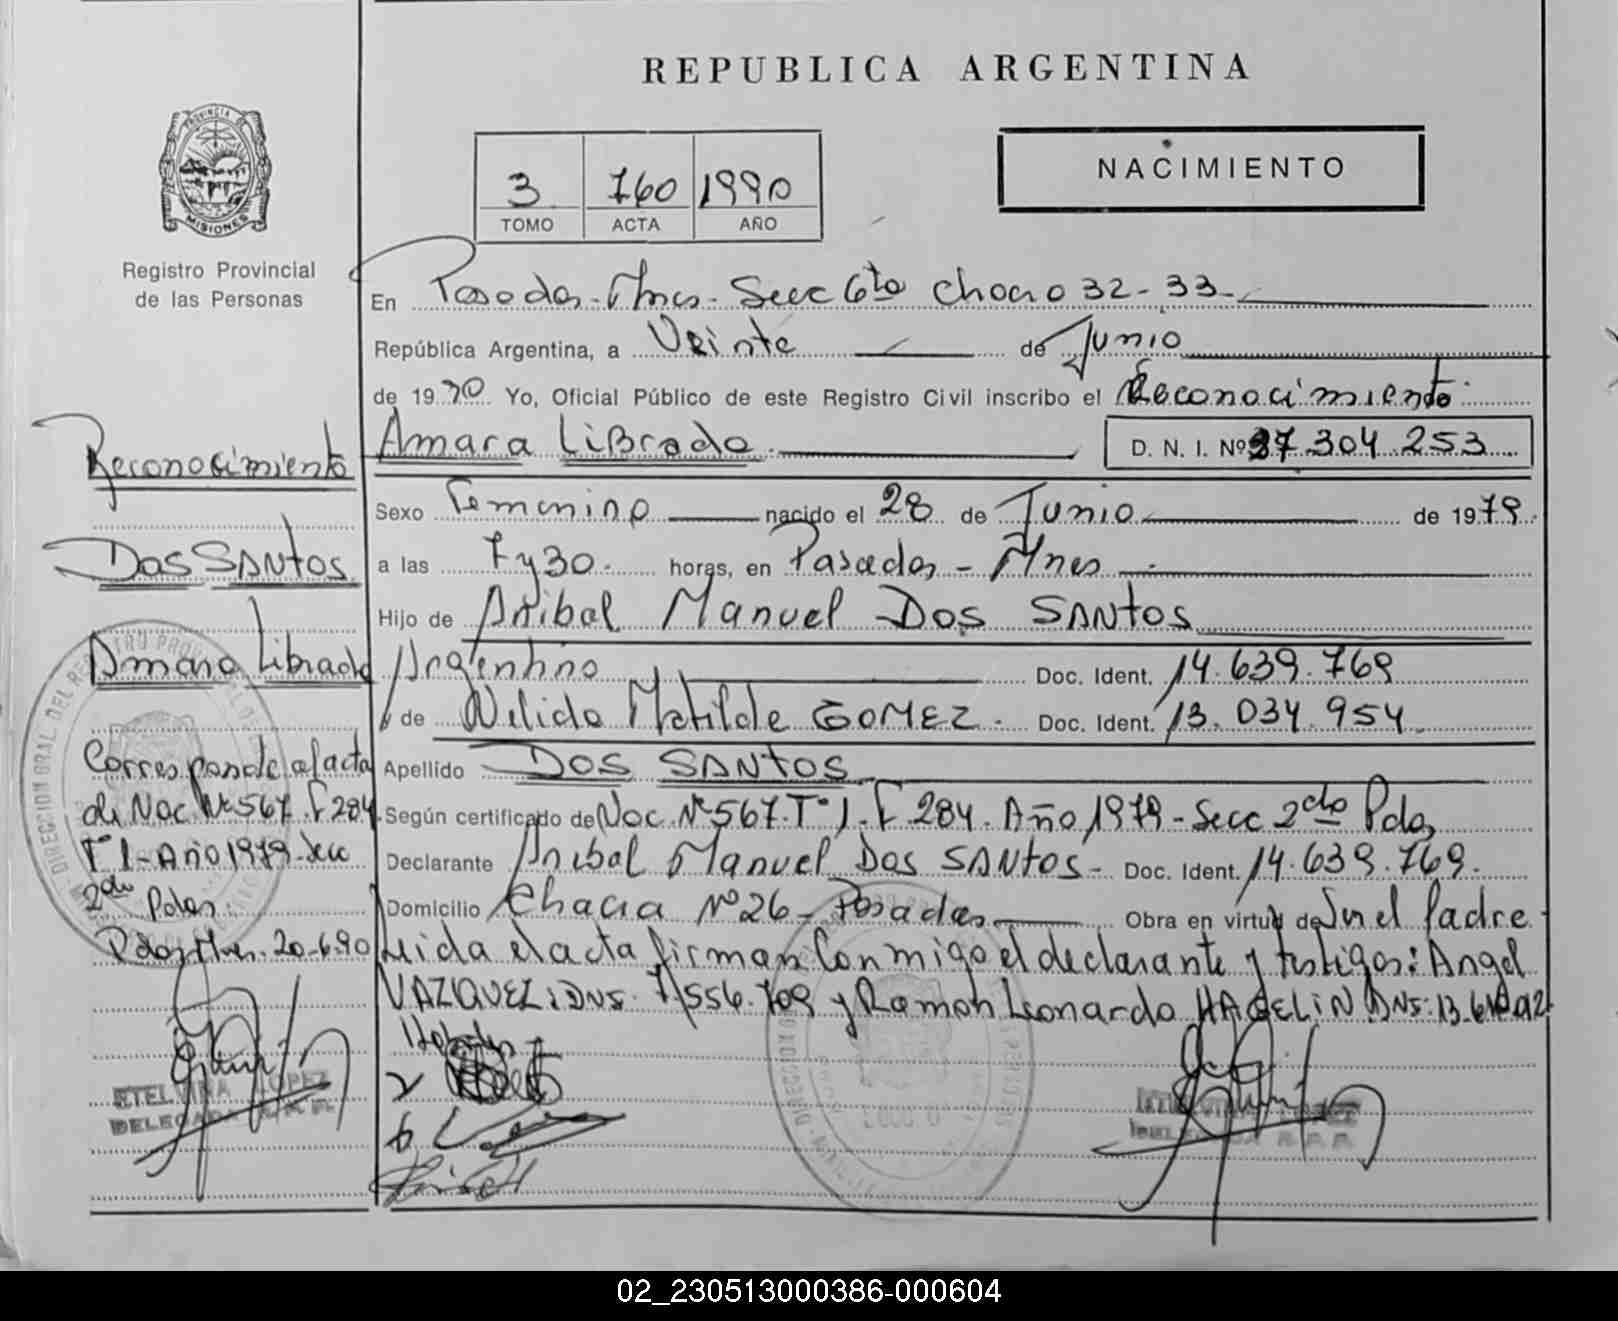 REPUBLICA ARGENTINA
PROVINCIA DE
MISIONES
Registro Provincial
de las Personas
3 160 1990
TOMO ACTA AÑO
NACIMIENTO
En Posadas - Mnes - Secc 6ta chacra 32 - 33 -
República Argentina, a Veinte de Junio
de 1990 Yo, Oficial Público de este Registro Civil inscribo el Reconocimiento
Amara LiBrada D. N. I. Nº 27.304.253
Sexo Femenino nacido el 28 de Junio de 1979
a las 7 y 30 horas, en Posadas - Mnes
Hijo de Anibal Manuel Dos SANtos
Argentino Doc. Ident. 14.639.769
y de Nelida Matilde GOMEZ - Doc. Ident. 13.034.954
Apellido DOS SANTOS
Según certificado de Nac. Nº 567. Tº 1. F 284. Año 1979 - Secc 2da Pdas
Declarante Anibal Manuel Dos SANtos - Doc. Ident. 14.639.769.
Domicilio Chacra Nº 26 - Posadas Obra en virtud de Ser el Padre
Leida el acta firman Conmigo el declarante y testigos: Angel
VAZQUEZ: DNI. 7.556.709 y Ramon Leonardo HAGELIN DNI: 13.
Reconocimiento
Dos SANtos
Amara Librada
Corresponde al acta
de Nac. Nº 567. F 284
Tº 1 - Año 1979 - Secc
2da Pdas
Pdas Mnes. 20-6-90
ETELVINA LOPEZ
DELEGADA R.P.P.
LOPEZ
R.P.P.
02_230513000386-000604